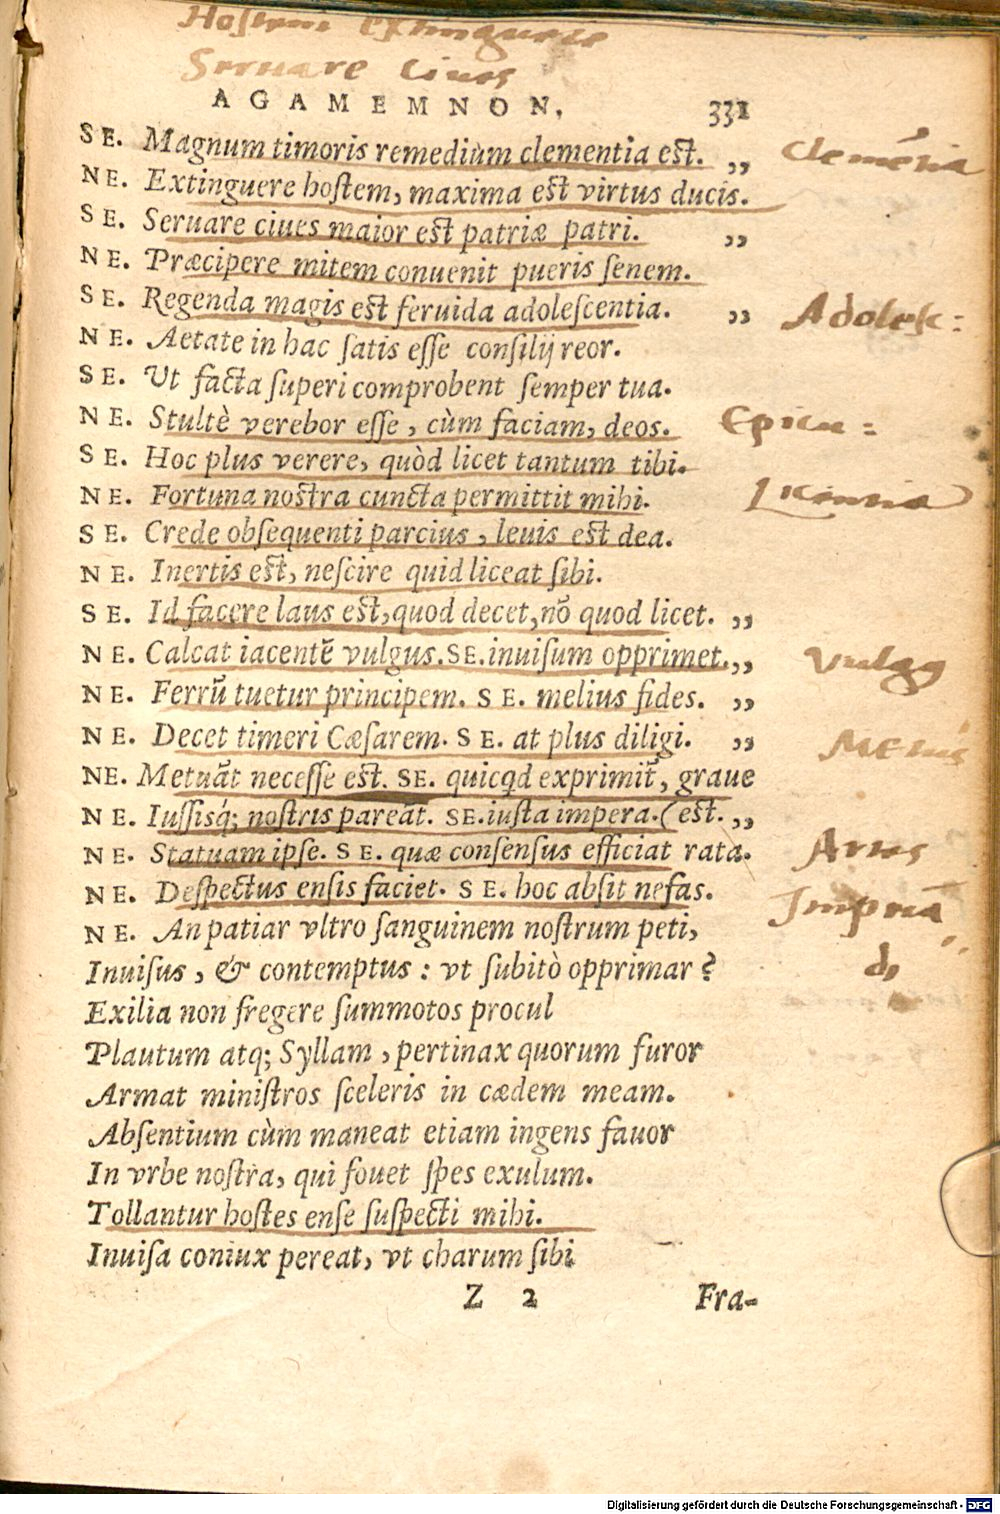 Hostem extinguere
Seruare Ciues
AGAMEMNON, 331
SE. Magnum timoris remedium clementia est. ,, Clemētia
NE. Extinguere hostem, maxima est virtus ducis.
SE. Seruare ciues maior est patriæ patri. ,,
NE. Præcipere mitem conuenit pueris senem.
SE. Regenda magis est feruida adolescentia. ,, Adolesc:
NE. Aetate in hac satis esse consilij reor.
SE. Vt facta superi comprobent semper tua.
NE. Stultè verebor esse, cùm faciam, deos. Epicu:
SE. Hoc plus verere, quòd licet tantum tibi.
NE. Fortuna nostra cuncta permittit mihi. Licentia
SE. Crede obsequenti parcius, leuis est dea.
NE. Inertis est, nescire quid liceat sibi.
SE. Id facere laus est, quod decet, nō quod licet. ,,
NE. Calcat iacentē vulgus. SE. inuisum opprimet. ,, Vulgg
NE. Ferrū tuetur principem. SE. melius fides. ,,
NE. Decet timeri Cæsarem. SE. at plus diligi. ,, Metus
NE. Metuāt necesse est. SE. quicqd exprimit̄, graue
NE. Iussisq; nostris pareāt. SE. iusta impera. (est. ,,
NE. Statuam ipse. SE. quæ consensus efficiat rata. Arms
NE. Despectus ensis faciet. SE. hoc absit nefas.
NE. An patiar vltro sanguinem nostrum peti,
Inuisus, & contemptus: vt subitò opprimar?
Exilia non fregere summotos procul
Plautum atq; Syllam, pertinax quorum furor
Armat ministros sceleris in cædem meam.
Absentium cùm maneat etiam ingens fauor
In vrbe nostra, qui fouet spes exulum.
Tollantur hostes ense suspecti mihi.
Inuisa coniux pereat, vt charum sibi
Z 2 Fra-
Digitalisierung gefördert durch die Deutsche Forschungsgemeinschaft - DFG